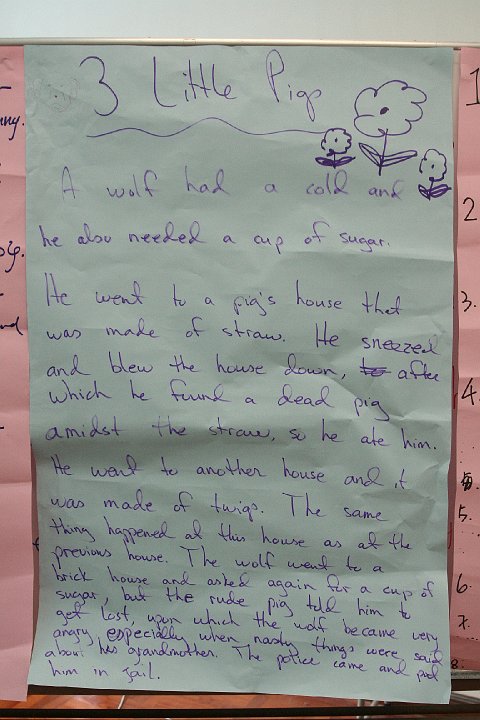 3 Little Pigs
A wolf had a cold and
he also needed a cup of sugar.
He went to a pig's house that
was made of straw. He sneezed
and blew the house down, to after
which he found a dead pig
amidst the straw, so he ate him.
He went to another house and it
was made of twigs. The same
thing happened at this house as at the
previous house. The wolf went to a
brick house and asked again for a cup of
sugar, but the rude pig told him to
get lost, upon which the wolf became very
angry, especially when nasty things were said
about his grandmother. The police came and put
him in jail.
ny.
1
2.
3.
4.
5.
6.
7.
8.